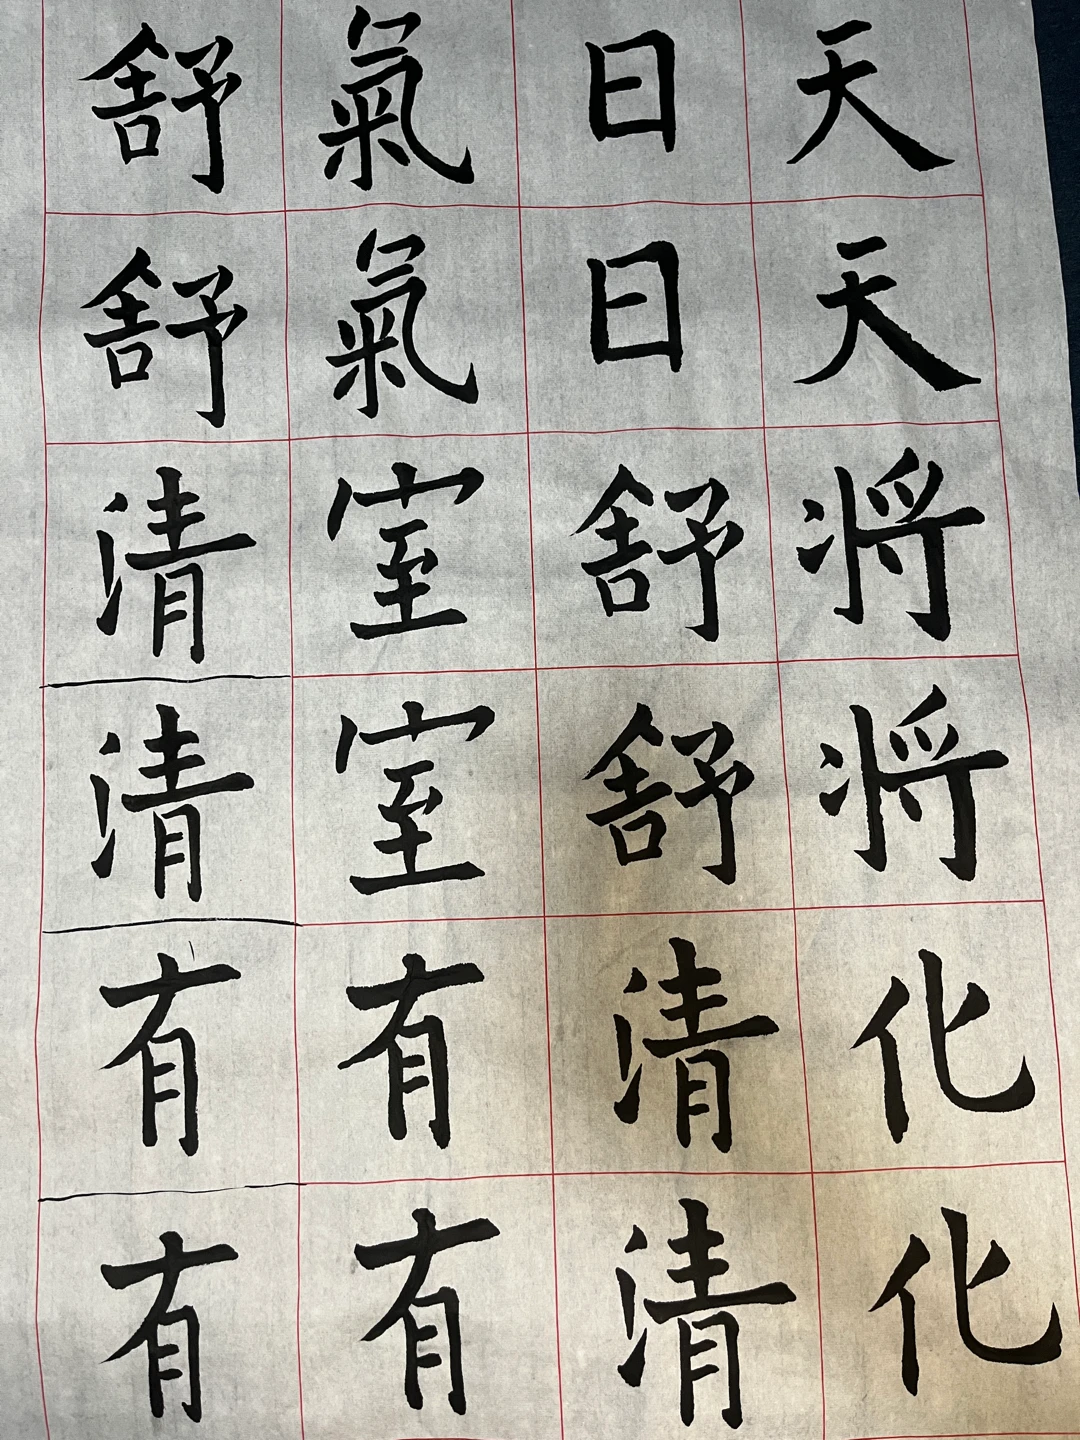 天天将将化化
日日舒舒清清
氣氣室室有有
舒舒清清有有